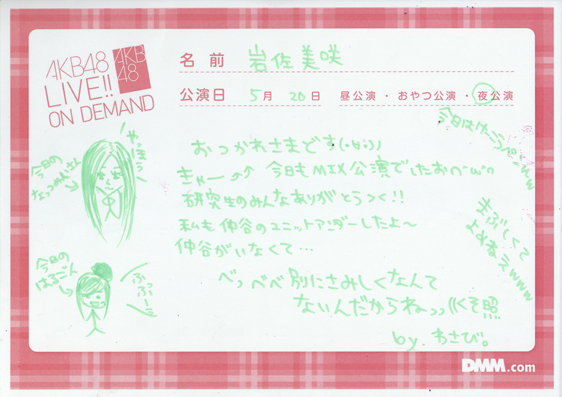 AKB48
LIVE!!
ON DEMAND
AKB
48
名前 岩佐美咲
公演日 5月 20日 昼公演・おやつ公演・夜公演
おつかれさまです(・∀・))
きゃー 今日もMIX公演でしたお(^ω^)
研究生のみんなありがとうっ!!
私も仲谷のユニットアンダーしたよ〜
仲谷がいなくて…
べっべべ別にさみしくなんて
ないんだからねっっ((くそ照
by.わさび。
やっほう
今日の
今日の
はるごん
ぶっふぉー
まぶしくて
www
DMM.com